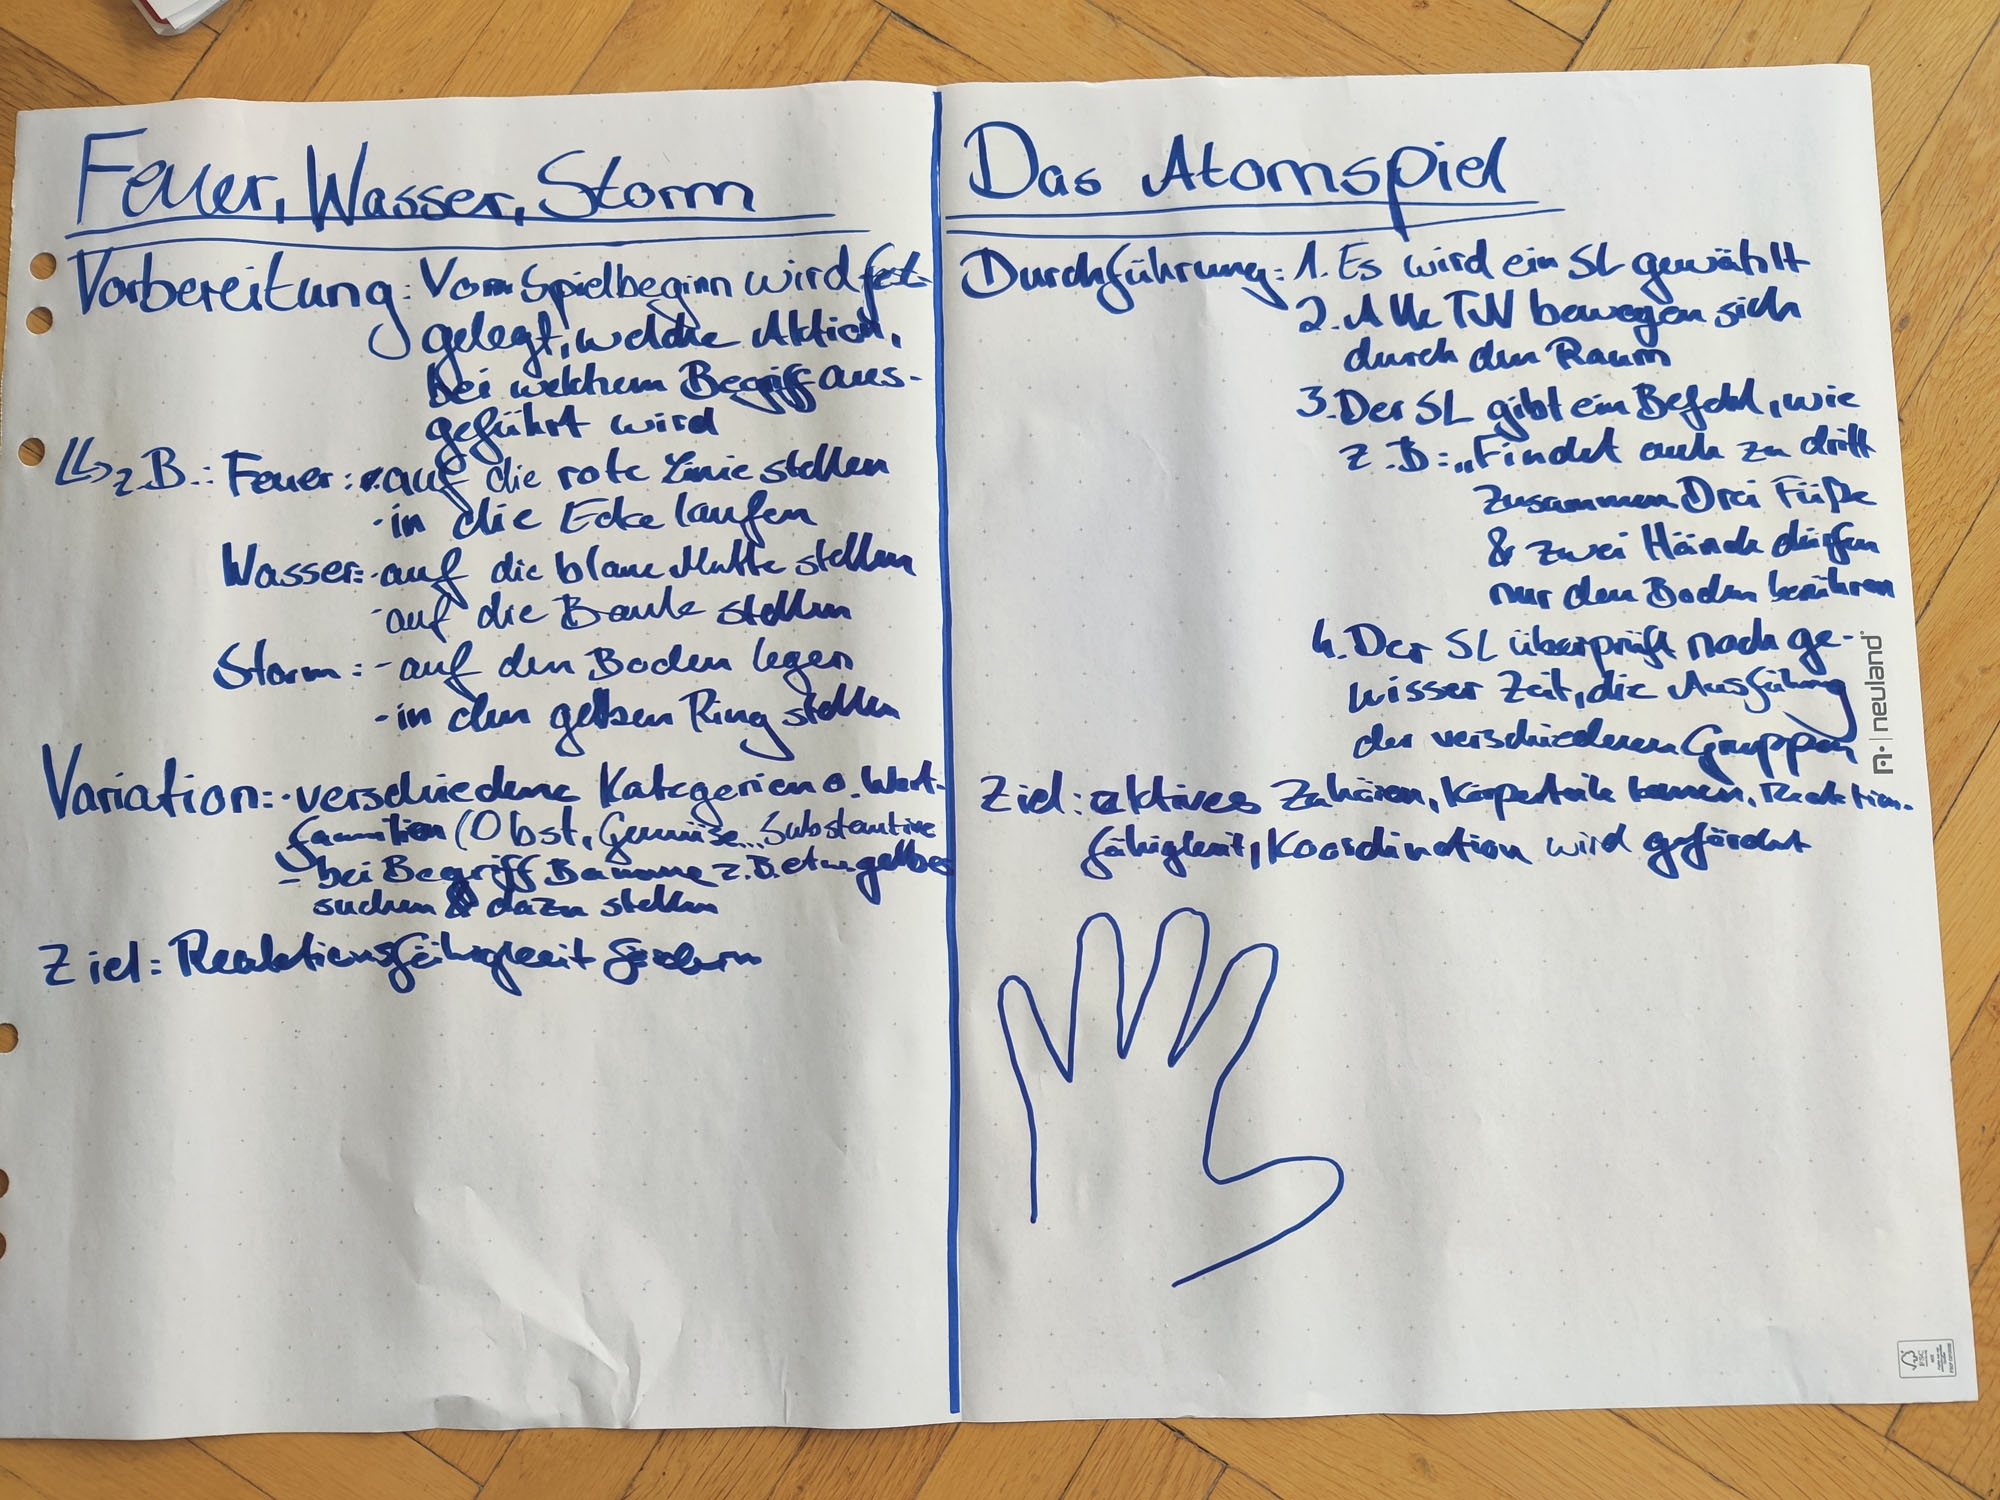 Feuer, Wasser, Storm
Vorbereitung: Vom Spielbeginn wird fest-
gelegt, welche Aktion,
bei welchem Begriff aus-
geführt wird
z.B.: Feuer: · auf die rote Linie stellen
· in die Ecke laufen
Wasser: · auf die blaue Matte stellen
- auf die Bank stellen
Storm: - auf den Boden legen
- in den gelben Ring stellen
Variation: · verschiedene Kategorien o. Wort-
familien (Obst, Gemüse... Substantive
- bei Begriff Banane z.B. etw. gelbes
suchen & dazu stellen
Ziel: Reaktionsfähigkeit fördern
Das Atomspiel
Durchführung: 1. Es wird ein SL gewählt
2. Alle TN bewegen sich
durch den Raum
3. Der SL gibt ein Befehl, wie
z.B: „Findet euch zu dritt
zusammen Drei Füße
& zwei Hände dürfen
nur den Boden berühren
4. Der SL überprüft nach ge-
wisser Zeit, die Ausführung
der verschiedenen Gruppen
Ziel: aktives Zuhören, Körperteile kennen, Reaktions-
fähigkeit, Koordination wird gefördert
neuland
FSC